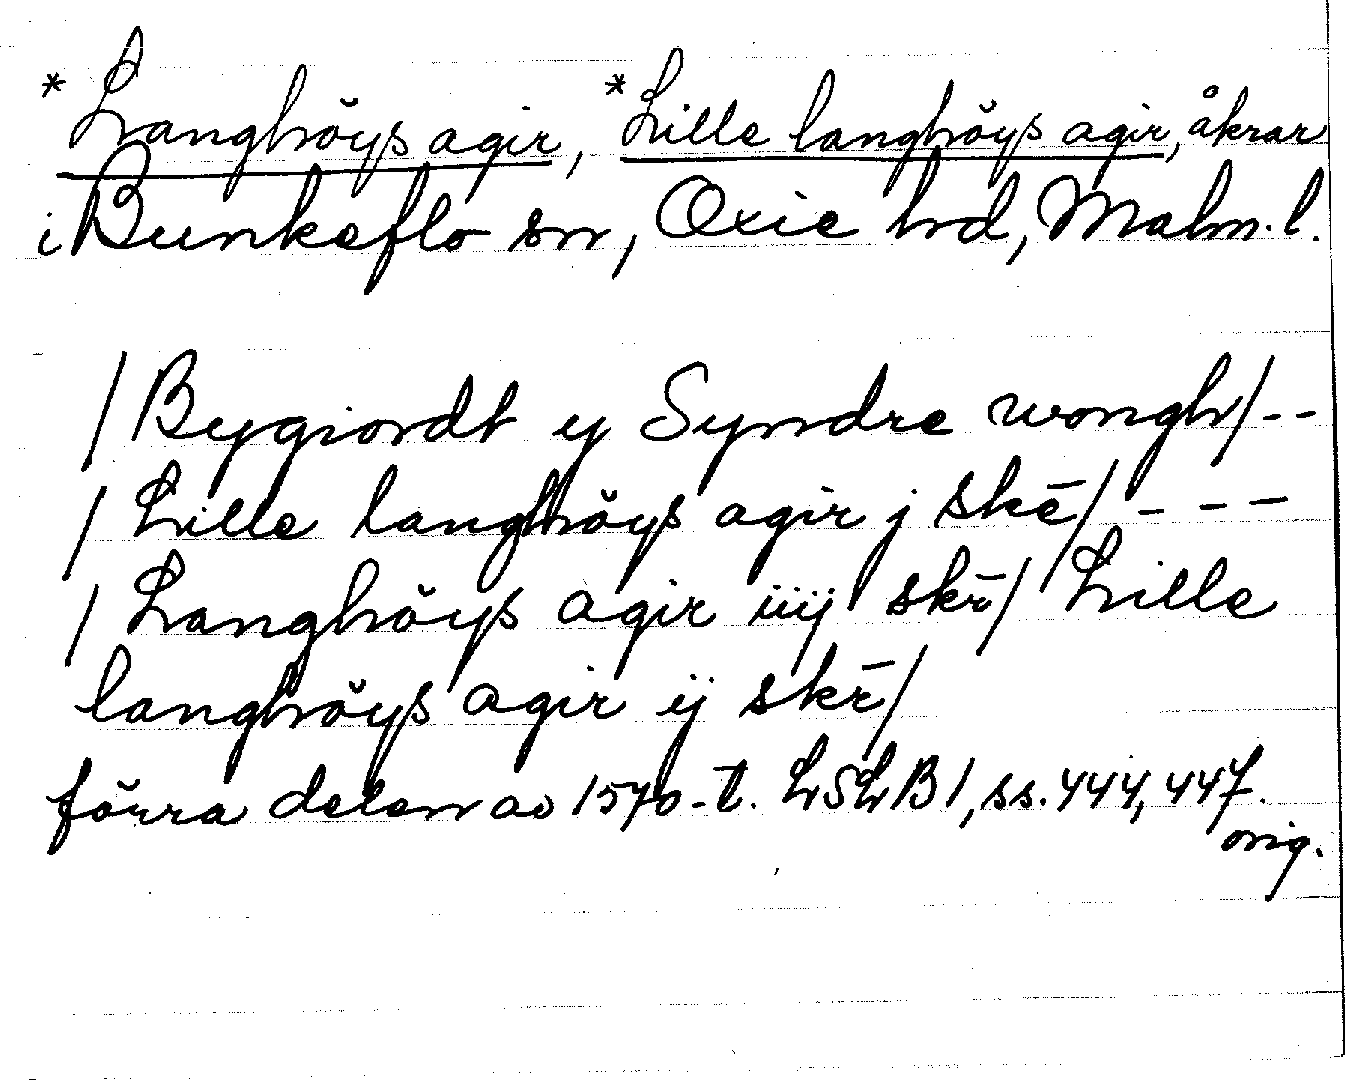 * Langhöys agir, * Lille langhöys agir, åkrar
i Bunkeflo sn, Oxie hd, Malm. l.
/ Bygiordt y Syndre wongh / - -
/ Lille langhöys agir j skē / - - -
/ Langhöys agir iiij skr̄ / Lille
langhöys agir ij skr̄ /
förra delen av 1570-t. LSLB 1, ss. 444, 447.
orig.